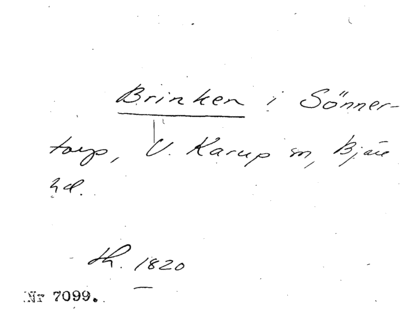 Brinken i Sönner-
torp, V. Karup sn, Bjäre
hd.
th. 1820
Nr 7099.